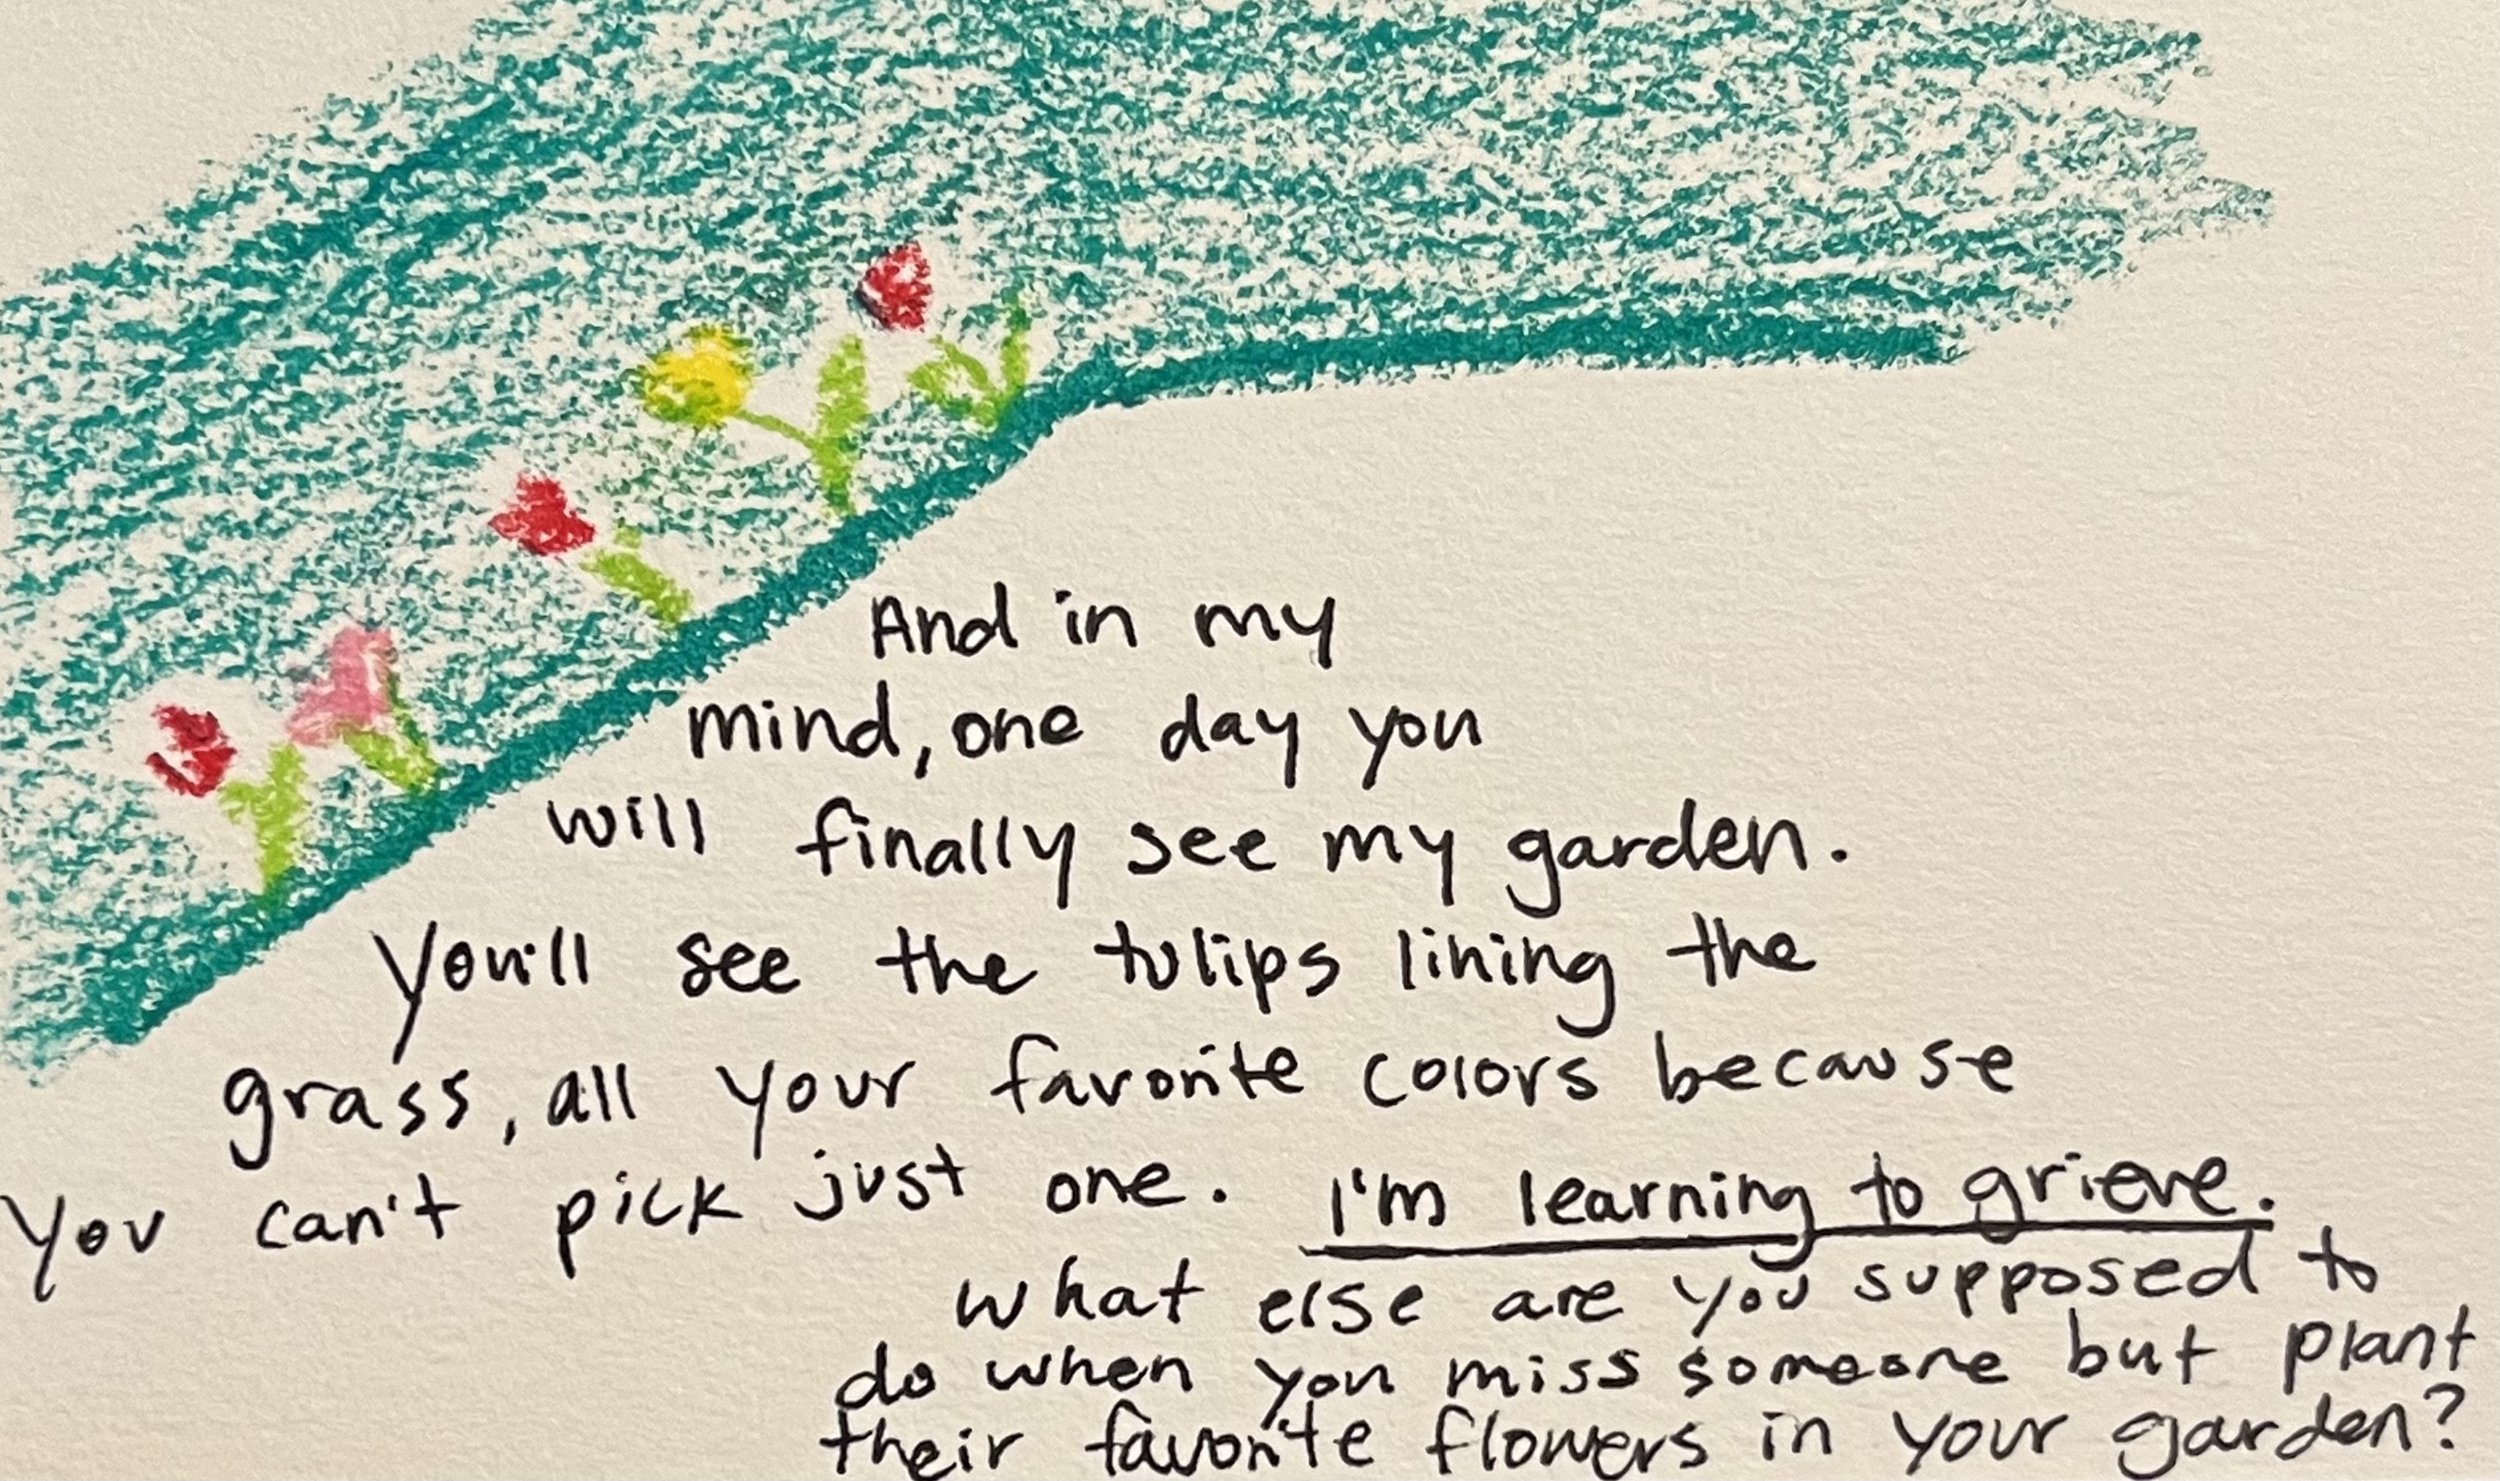 And in my
mind, one day you
will finally see my garden.
You'll see the tulips lining the
grass, all your favorite colors because
you can't pick just one. I'm learning to grieve.
what else are you supposed to
do when you miss someone but plant
their favorite flowers in your garden?